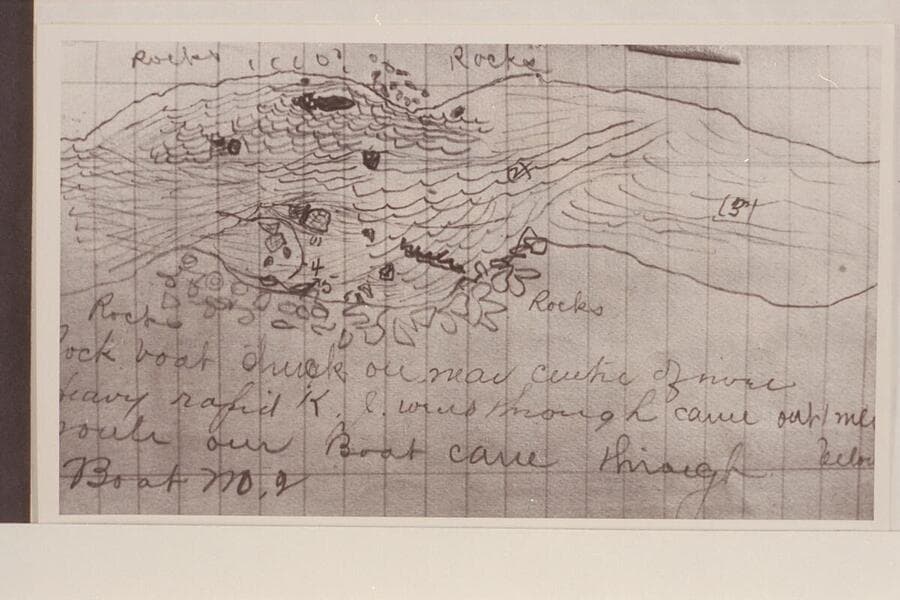 Rocks Rocks
(5)
4
5
Rocks
Rocks
ock boat struck on near centre of river
heavy rapid K. C. went through came out
our Boat came through below
Boat No. 2